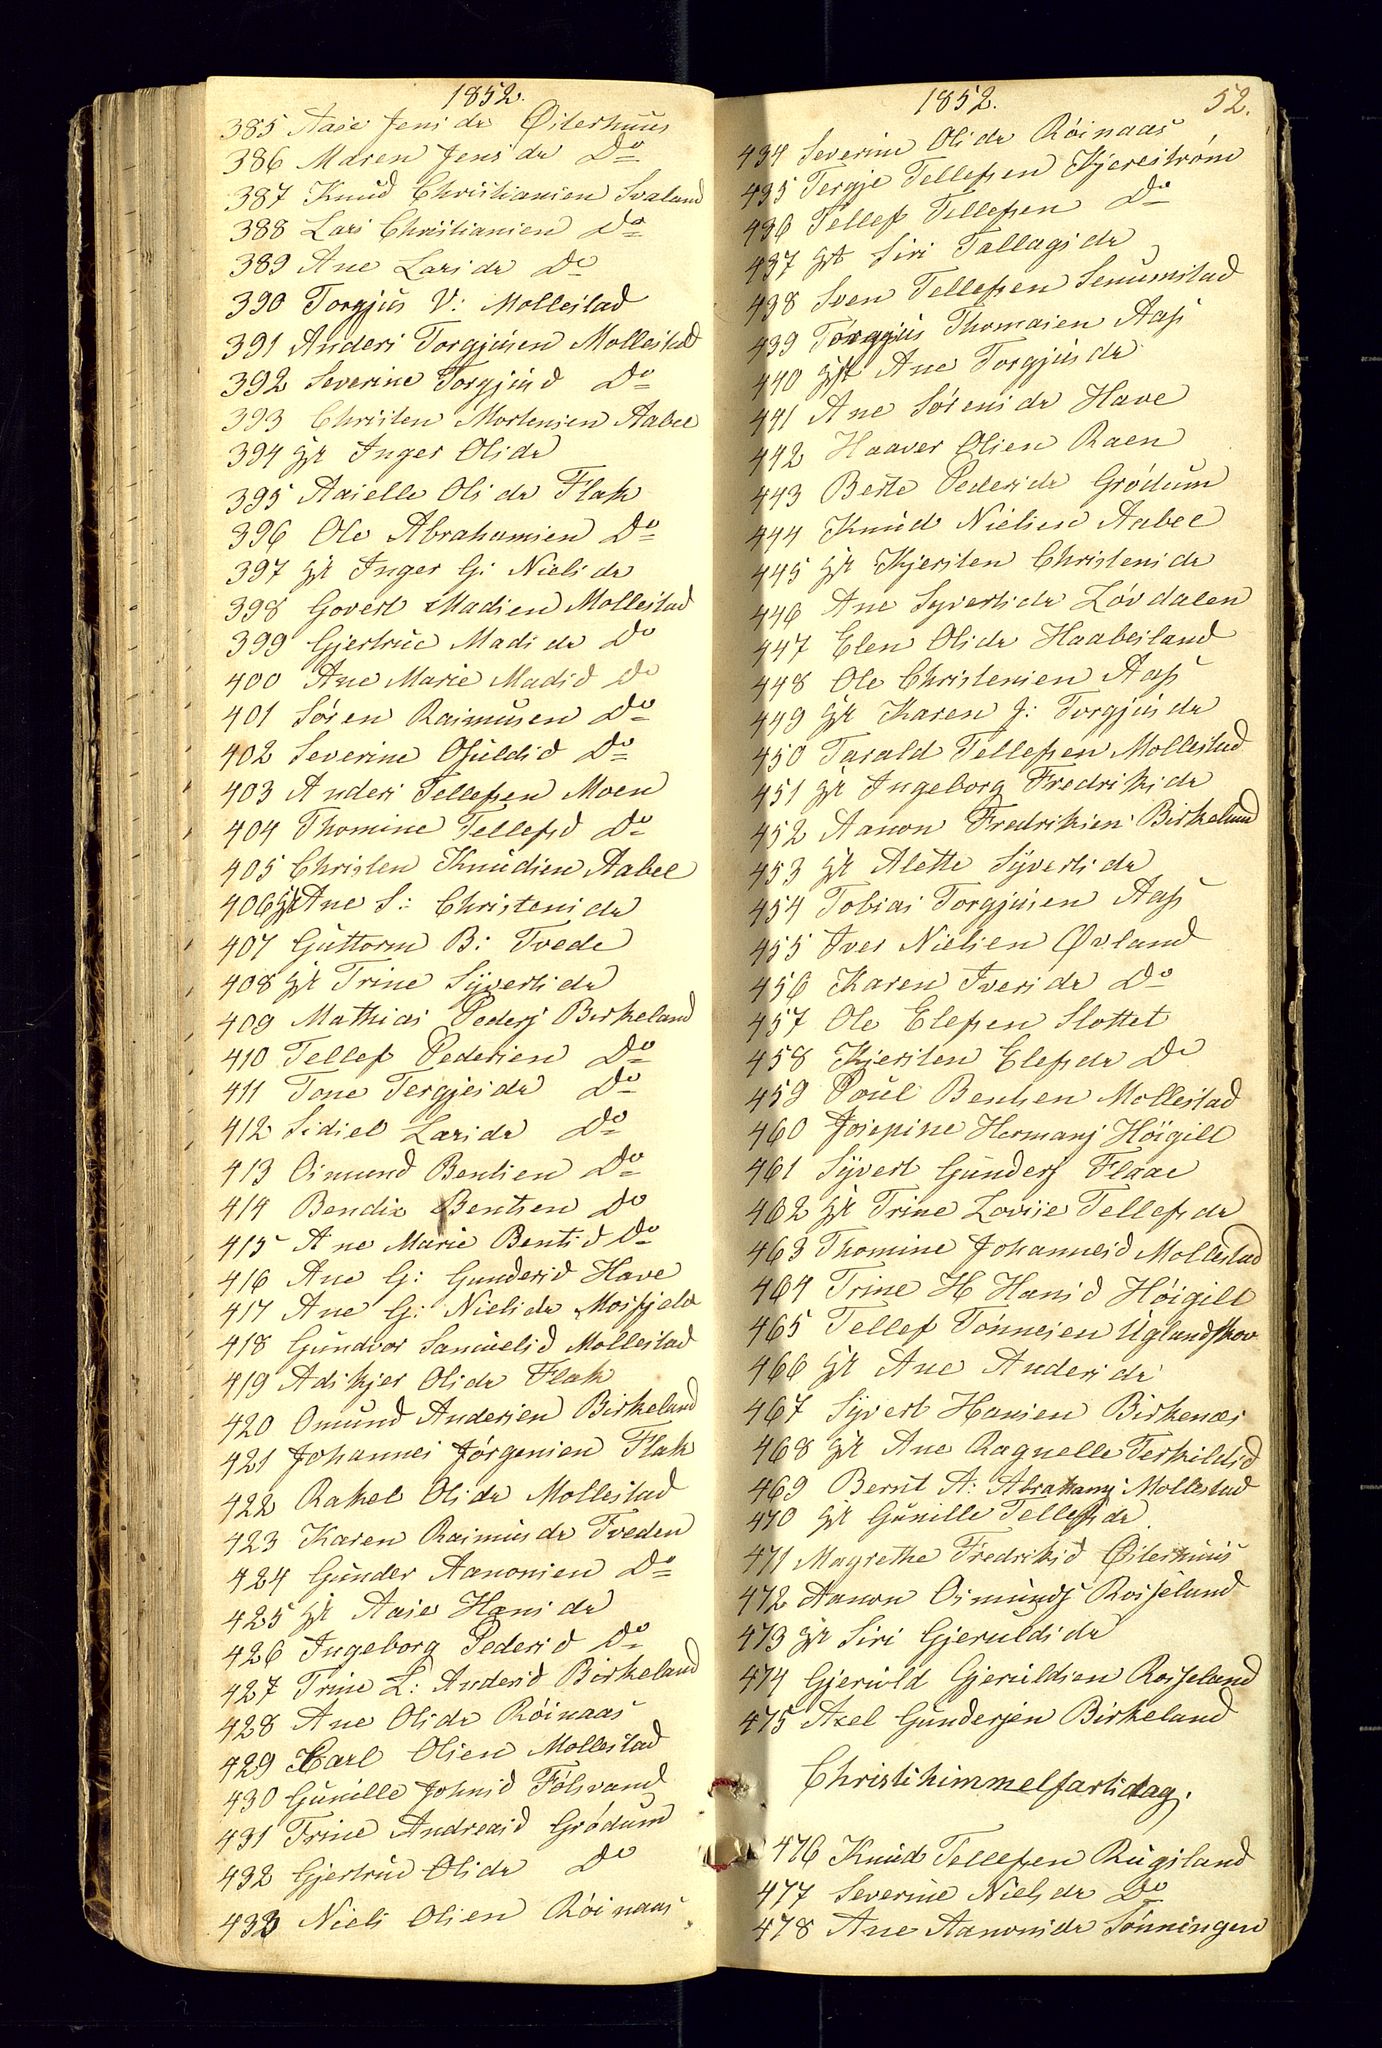 1852.
385 Aase Jensdr Østerhuus
386 Maren Jensdr Do
387 Knud Christiansen Svaland
388 Lars Christiansen Do
389 Ane Larsdr Do
390 Torgjus V: Mollestad
391 Anders Torgjusen Mollestad
392 Severine Torgjusd Do
393 Christen Mortensen Aabel
394 hst Inger Olsdr
395 Aaselle Olsdr Flak
396 Ole Abrahamsen Do
397 hst Inger G: Nielsdr
398 Govert Madsen Mollestad
399 Gjertrue Madsdr Do
400 Ane Marie Madsd Do
401 Sören Rasmusen Do
402 Severine Osuldsd Do
403 Anders Tellefsen Moen
404 Thomine Tellefsd Do
405 Christen Knudsen Aabel
406 hst Ane S: Christensdr
407 Guttorm B: Tvede
408 hst Trine Syvertsdr
409 Mathias Peders Birkeland
410 Tellef Pedersen Do
411 Tone Tergjesdr Do
412 Sidsel Larsdr Do
413 Osmund Bentsen Do
414 Bendix Bentsen Do
415 Ane Marie Bentsd Do
416 Ane G: Gundersd Have
417 Ane G: Nielsdr Mosfjeld
418 Gundvor Samuelsd Mollestad
419 Adskjer Olsdr Flak
420 Omund Andersen Birkeland
421 Johannes Jörgensen Flak
422 Rakel Olsdr Mollestad
423 Karen Rasmusdr Tveden
424 Gunder Aanonsen Do
425 hst Aase Hansdr
426 Ingeborg Pedersd Do
427 Trine L: Andersd Birkeland
428 Ane Olsdr Röinaas
429 Carl Olsen Mollestad
430 Gunille Johnsd Fölsvand
431 Trine Andreasd Grödum
432 Gjertrue Olsdr Do
433 Niels Olsen Röinaas
1852. 52.
434 Severine Olsdr Röinaas
435 Tergje Tellefsen Kjereström
436 Tellef Tellefsen Do
437 hst Siri Tallagsdr
438 Sven Tellefsen Senumstad
439 Torgjus Thomasen Aas
440 hst Ane Torgjusdr
441 Ane Sörensdr Have
442 Haaver Olsen Raen
443 Berte Pedersdr Grödum
444 Knud Nielsen Aabel
445 hst Kjersten Christensdr
446 Ane Syvertsdr Lövdalen
447 Elen Olsdr Haabesland
448 Ole Christensen Aas
449 hst Karen J: Torgjusdr
450 Tarald Tellefsen Mollestad
451 hst Ingeborg Fredriksdr
452 Aanon Fredriksen Birkeland
453 hst Alette Syvertsdr
454 Tobias Torgjusen Aas
455 Iver Nielsen Øvland
456 Karen Iversdr Do
457 Ole Elefsen Slottet
458 Kjersten Elefsdr Do
459 Poul Bentsen Mollestad
460 Josepine Hermans Höigilt
461 Syvert Gunders Flaae
462 hst Trine Lovise Tellefsdr
463 Thomine Johannesd Mollestad
464 Trine H Hansd Höigilt
465 Tellef Tönnesen Uglandskov
466 hst Ane Andersdr
467 Syvert Hansen Birkenæs
468 hst Ane Ragnelle Terkildsd
469 Bernt A: Abrahams Mollestad
470 hst Gunille Tellefsdr
471 Magrethe Fredriksd Østerhuus
472 Aanon Osmunds Rosseland
473 hst Siri Gjeruldsdr
474 Gjeruld Gjeruldsen Rosseland
475 Axel Gundersen Birkeland
Christihimmelfartsdag.
476 Knud Tellefsen Rugsland
477 Severine Nielsdr Do
478 Ane Aanonsdr Sönningen